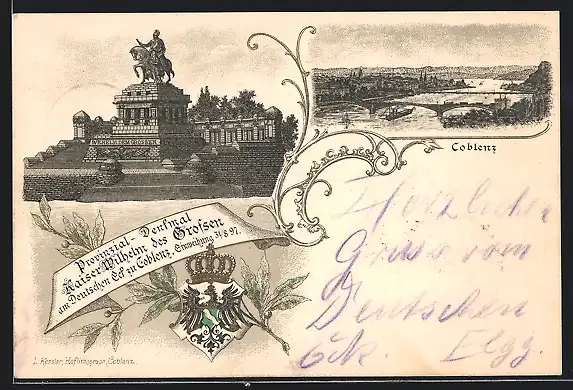 WILHELM DEM GROSSEN
Coblenz
Provinzial-Denkmal
Kaiser Wilhelm des Grossen
am Deutschen Eck zu Coblenz. Einweihung 31/8 97.
Herzlichen
Gruss vom
Deutschen
Eck.
L. Kessler, Hoflithograph, Coblenz.